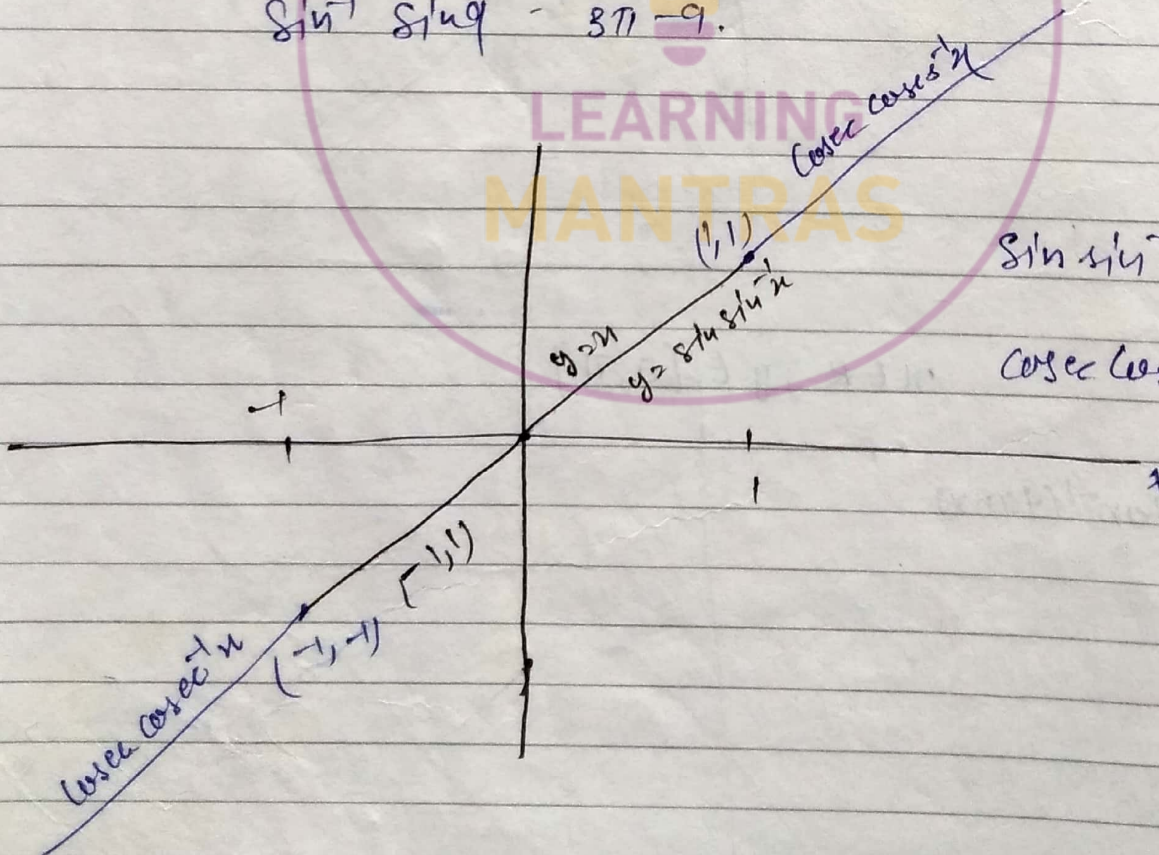 Sin⁻¹ Sin9 - 3π - 9.
LEARNING
MANTRAS
Cosec cosec⁻¹x
(1, 1)
Sin sin⁻
y = x
y = sin sin⁻¹x
Cosec Cos
-1
1
[-1, 1)
(-1, -1)
Cosec cosec⁻¹x